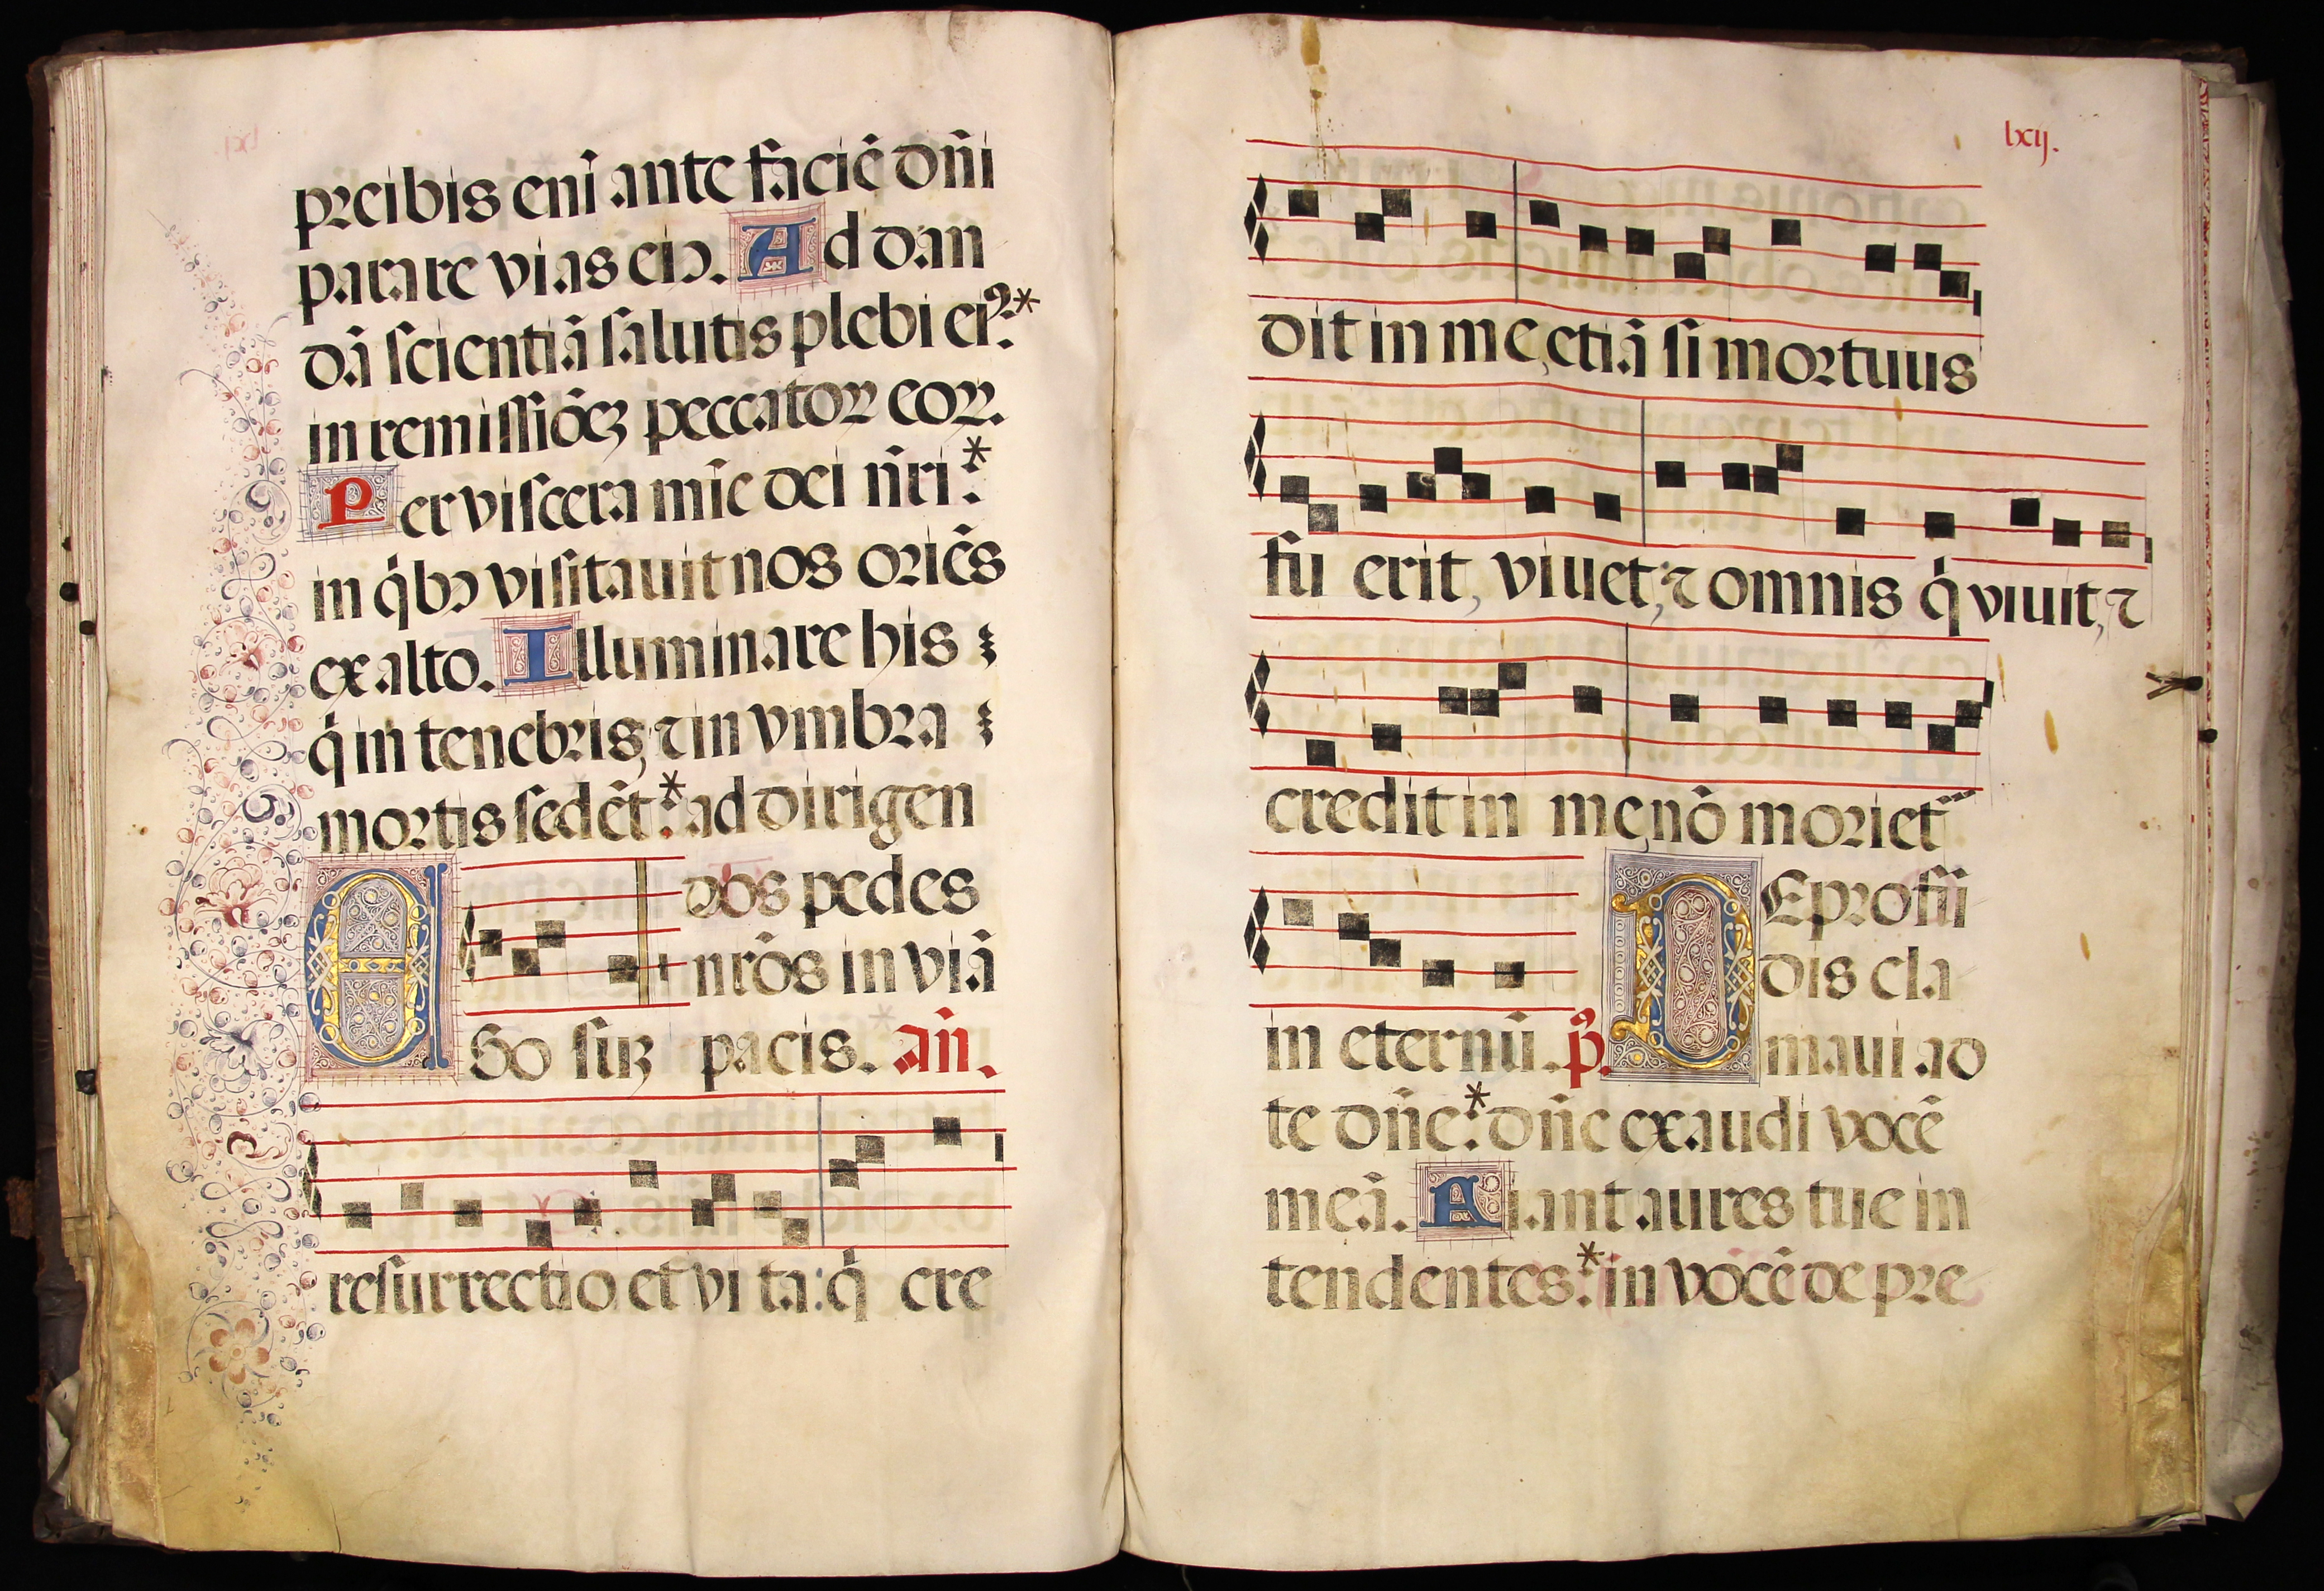 preibis enĩ ante faciẽ dñi
parare vias eiꝰ. Ad dan
dã ſcientiã ſalutis plebi eiꝰ:*
in remiſſiõeʒ peccatoꝝ eoꝝ.
Per viſcera mĩe dei ñri:*
in q̇bꝰ viſitauit nos oriẽs
ex alto. Illuminare his
q̇ in tenebris, ⁊ in vmbra
mortis ſedẽt:* ad dirigen
dos pedes
nrõs in viã
EGo ſuʒ pacis. añ.
reſurrectio et vi ta: q̇ cre
lxij.
dit in me, etiã ſi mortuus
fu erit, viuet; ⁊ omnis q̇ viuit, ⁊
credit in me, nõ moriet᷑
DE profũ
dis cla
in eternũ. p̃s. maui ad
te dñe:* dñe exaudi vocẽ
meã. Fiant aures tue in
tendentes:* in vocẽ de pre